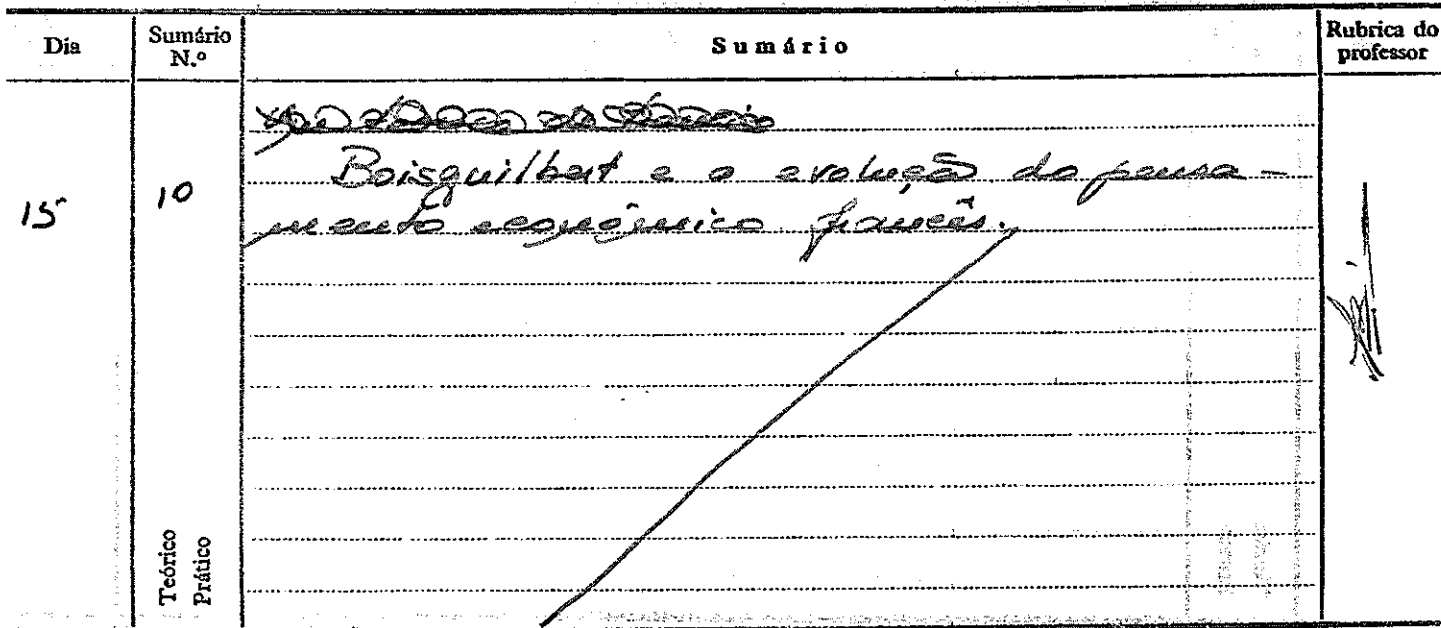 Dia
Sumário N.º
Sumário
Rubrica do professor
15
10
Boisguilbert e a evolução do pensa-
mento económico francês.
Teórico
Prático